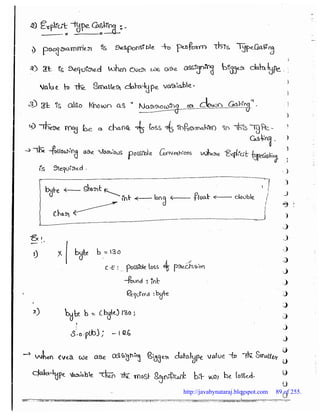 2) Explicit type Casting :-
1) programmer is responsible to perform this TypeCasting
2) It is required when ever we are assigning bigger datatype
value to the smaller datatype variable.
3) It is also known as "Narrowing or down Casting".
4) There may be a chance of loss of information in this Type-
Casting.
→ The following are various possible Conversions where Explicit typecasting
is required.
byte ← short
int ← long ← float ← double
char ←
Ex:
1) x byte b = 130
C.E: possible loss of precision
found : int
Required : byte
2) byte b = (byte) 130;
S.o.p(b); -126
→ when ever we are assigning Bigger datatype value to the Smaller
datatype variable then the most Significant bit will be losted.
http://javabynataraj.blogspot.com 89 of 255.